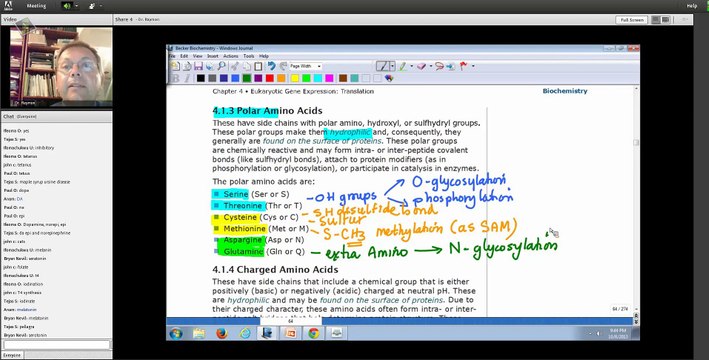 Meeting
Help
Share 4 - Dr. Roman
Full Screen
Dr. Roman
Chat (Everyone)
Ifeoma O: yes
Tejas S: yes
yes
Ifeoma O: tetanus
john c: tetanus
Tejas S: maple syrup urine disease
Paul O: dopa
Tejas S: da epi and norepinephrine
john c: T4 synthesis
Tejas S: iodinate
Aram: melatonin
Bryan Nevil: melatonin
Tejas S: pellagra
Bryan Nevil: serotonin
john c: serotonin
Everyone
Becker Biochemistry - Windows Journal
File Edit View Insert Actions Tools Help
Page Width
Chapter 4 • Eukaryotic Gene Expression: Translation
Biochemistry
4.1.3 Polar Amino Acids
These have side chains with polar amino, hydroxyl, or sulfhydryl groups.
These polar groups make them hydrophilic and, consequently, they
generally are found on the surface of proteins. These polar groups
are chemically reactive and may form intra- or inter-peptide covalent
bonds (like sulfhydryl bonds), attach to protein modifiers (as in
phosphorylation or glycosylation), or participate in catalysis in enzymes.
The polar amino acids are:
Serine (Ser or S)
Threonine (Thr or T)
Cysteine (Cys or C)
Methionine (Met or M)
Aspargine (Asp or N)
Glutamine (Gln or Q)
-OH groups
O-glycosylation
phosphorylation
-SH desulfide bond
-Sulfur
S-CH3 methylation (as SAM)
- extra Amino → N-glycosylation
4.1.4 Charged Amino Acids
These have side chains that include a chemical group that is either
positively (basic) or negatively (acidic) charged at neutral pH. These
are hydrophilic and may be found on the surface of proteins. Due to
their charged character, these amino acids often form intra- or inter-